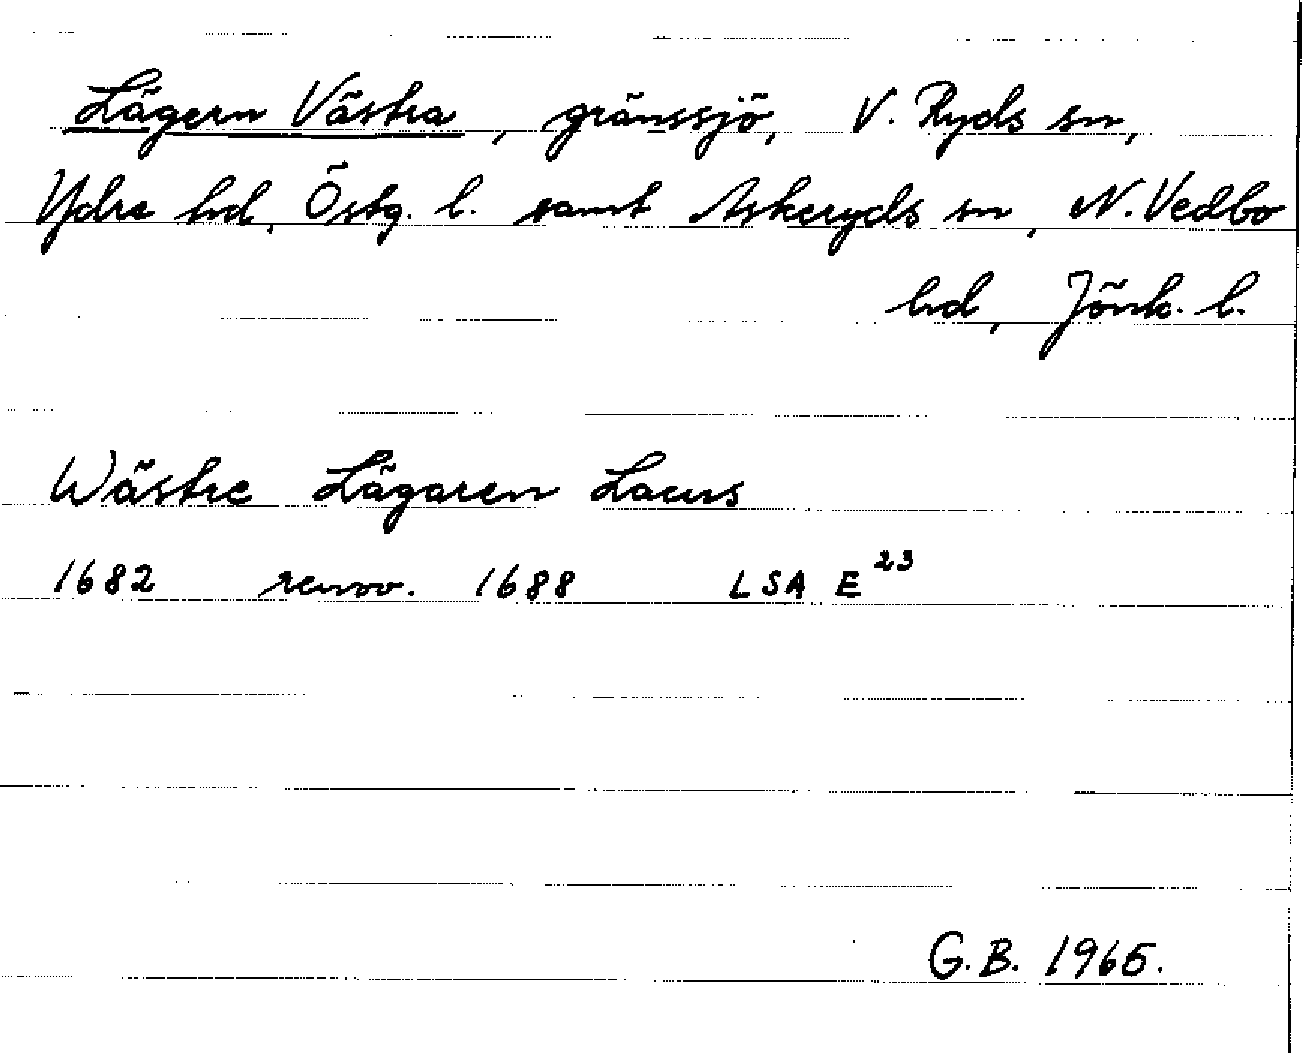 Lägern Västra, gränssjö, V. Ryds sn,
Ydre hd, Östg. l. samt Askeryds sn, N. Vedbo
hd, Jönk. l.
Wästre Lägaren Lacus
1682 renov. 1688 LSA E²³
G.B. 1965.